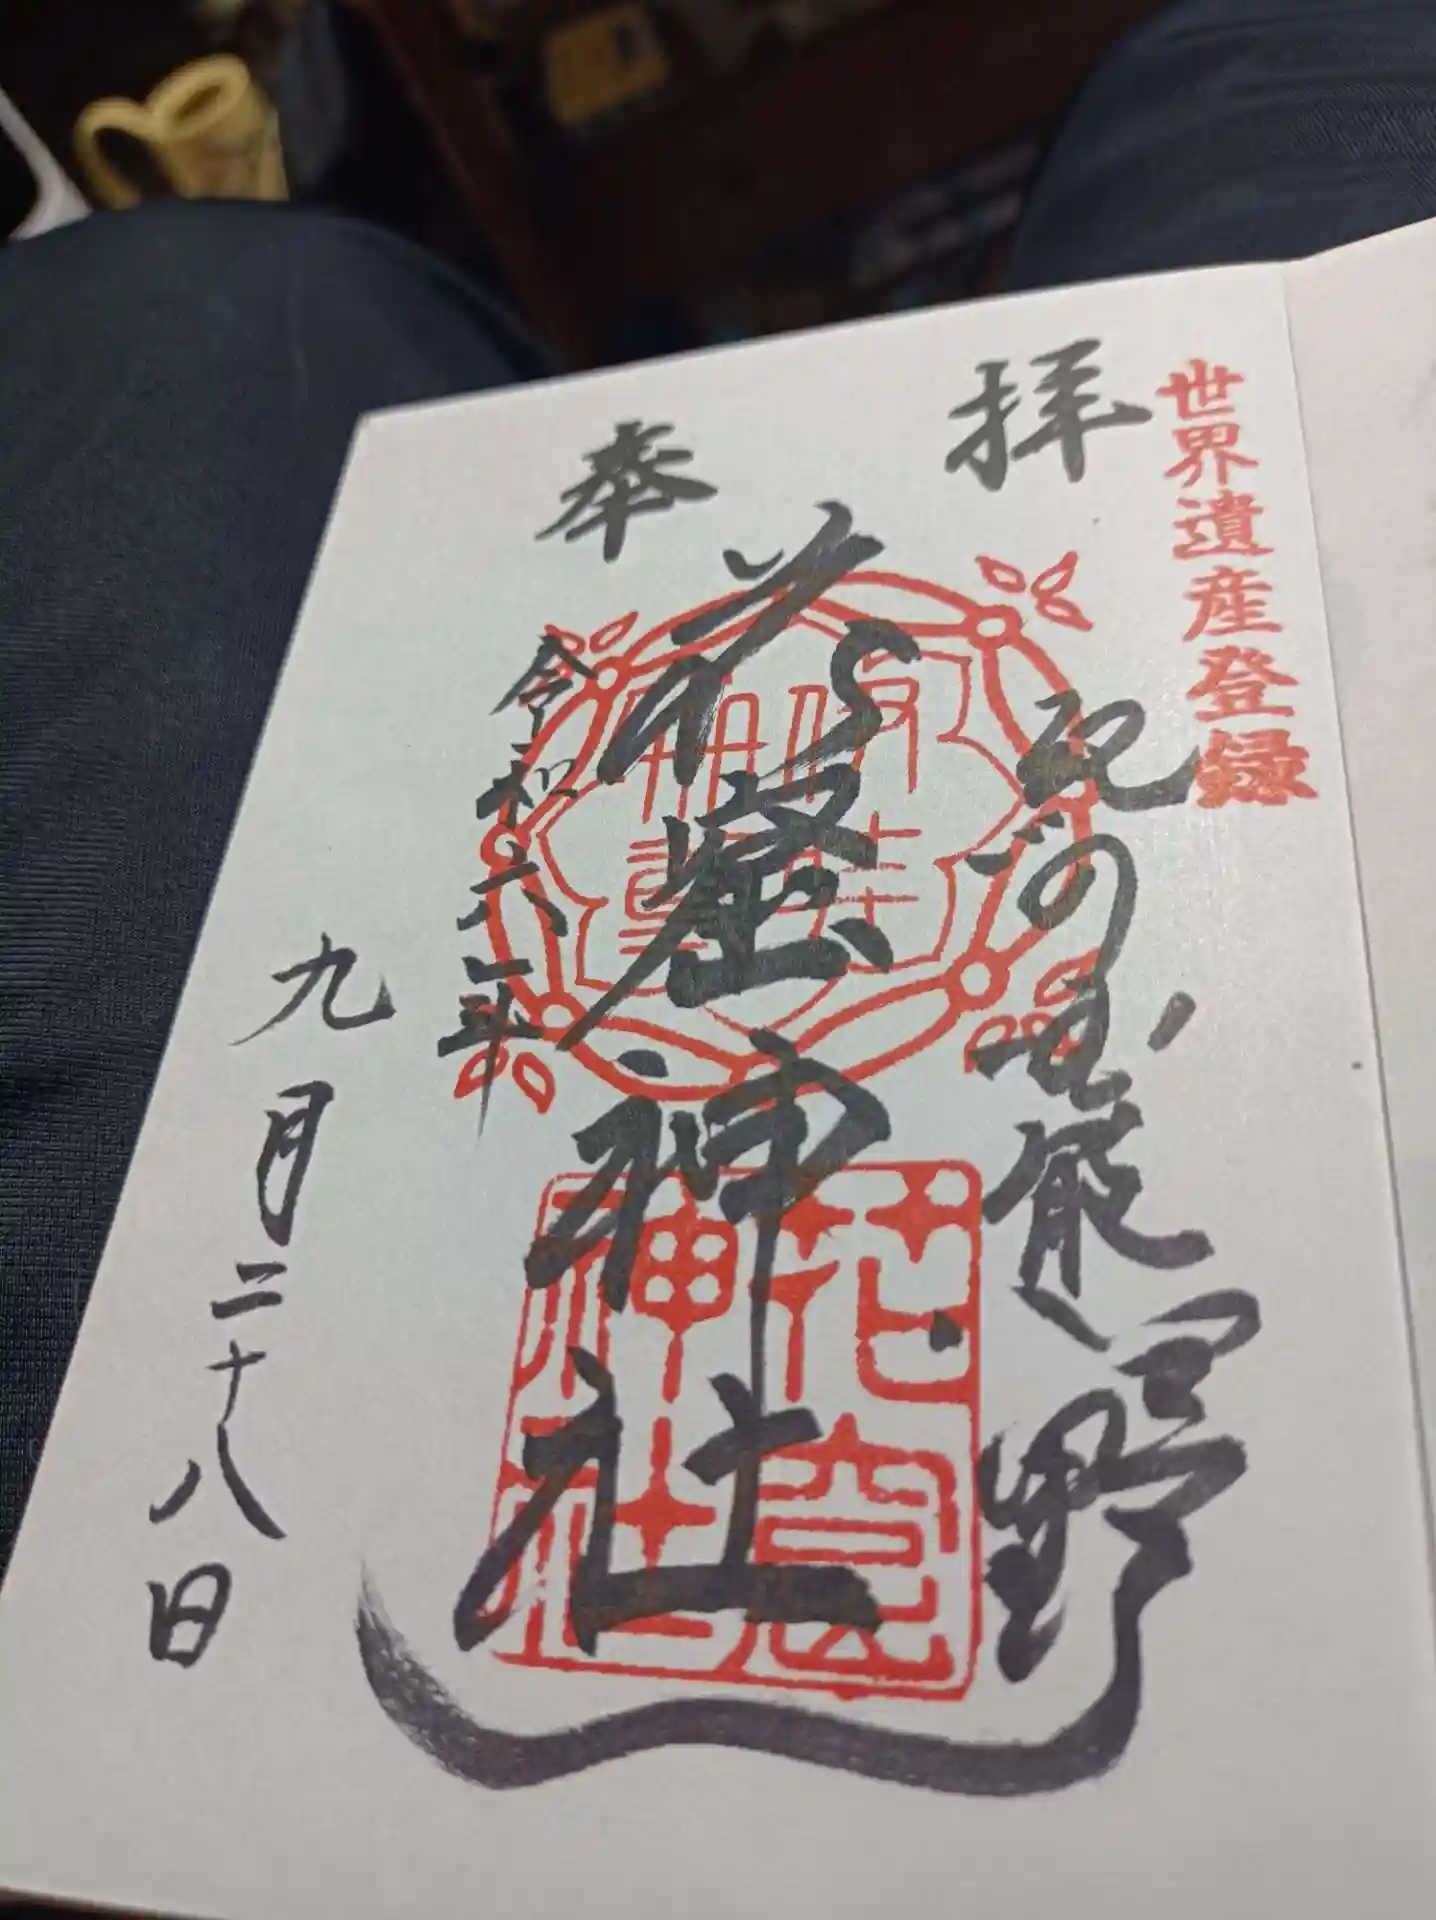 世界遺産登録
奉拝
紀の国熊野
花窟神社
花窟
神社
令和六年
九月二十八日